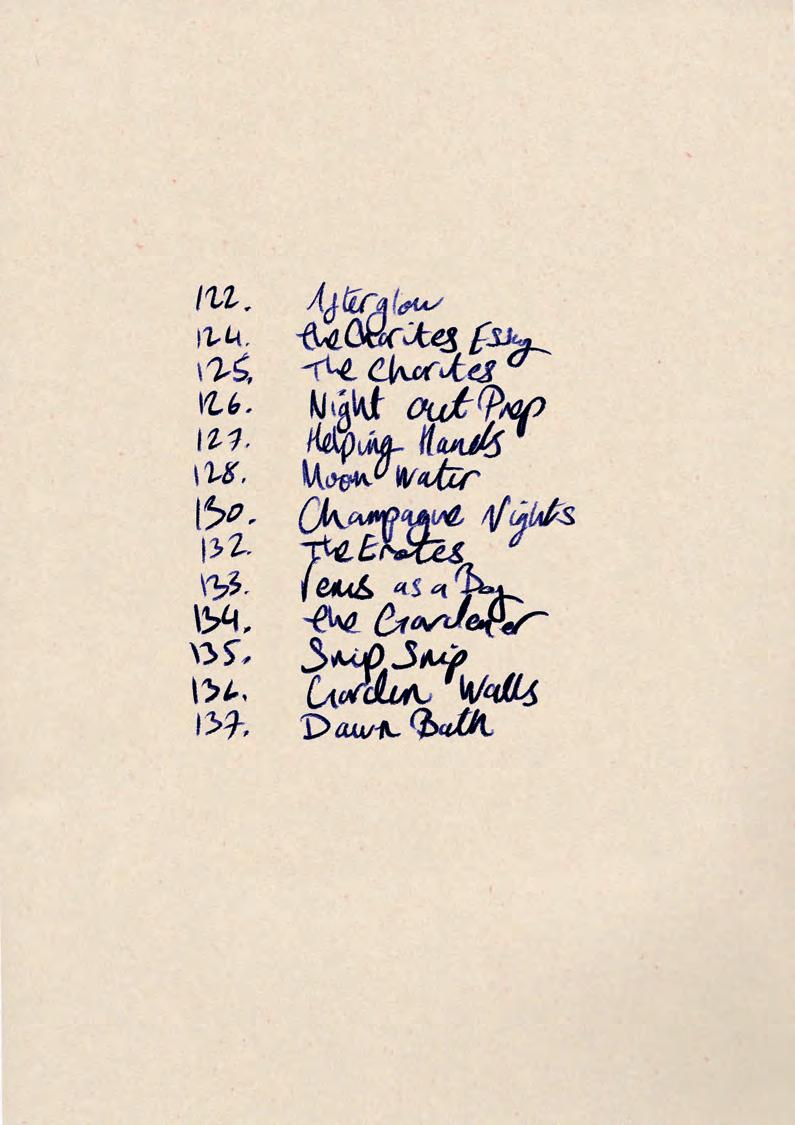 122. Afterglow
124. the Charites Essay
125. The Charites
126. Night out Prep
127. Helping Hands
128. Moon Water
130. Champagne Nights
132. The Erotes
133. Venus as a Boy
134. the Gardener
135. Snip Snip
136. Garden Walls
137. Dawn Bath